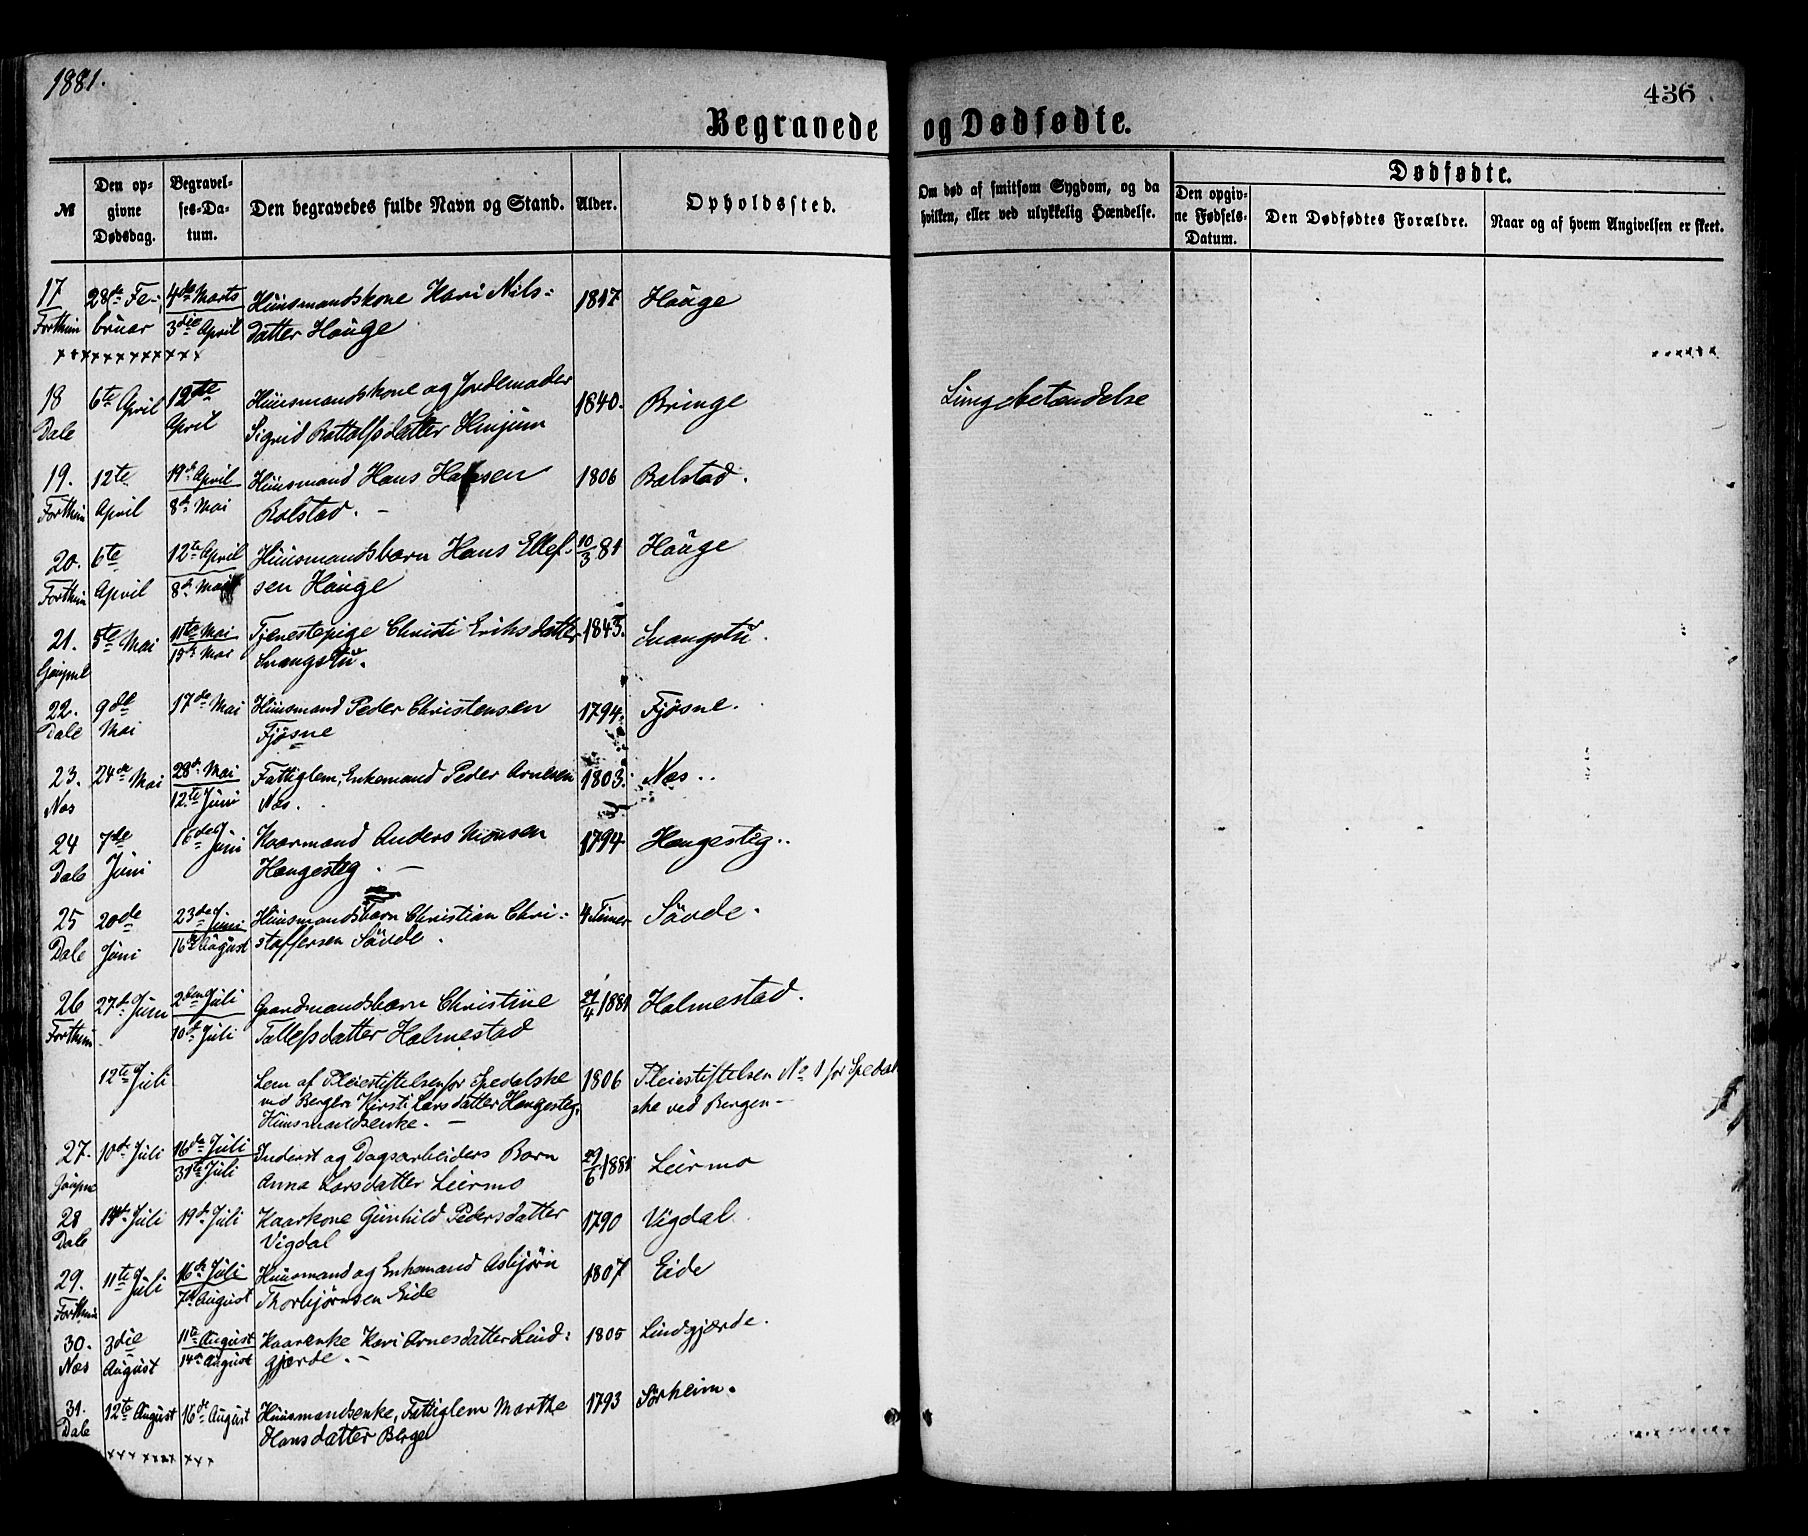 1881.
436
Begravede og Dødfødte.
№
Den opgivne Dødsdag.
Begravelses-Datum.
Den begravedes fulde Navn og Stand.
Alder.
Opholdssted.
Om død af smitsom Sygdom, og da hvilken, eller ved ulykkelig Hændelse.
Dødfødte.
Den opgivne Fødsels-Datum.
Den Dødfødtes Forældre.
Naar og af hvem Angivelsen er skeet.
17 28de Fe- 4de Marts Huusmandskone Kari Nils- 1817 Hauge
Forthun bruar 3die April datter Hauge
18 6te April 12te Huusmandskone og Jordemoder 1840. Bringe Lungebetændelse
Dale April Sigrid Rottolfsdatter Hinjum
19. 12te 19de April Huusmand Hans Hansen 1806 Bolstad.
Forthun April 8de Mai Bolstad. —
20. 6te 12te April Huusmandsbarn Hans Ellef- 10/3 81 Hauge
Forthun April 8de Mai sen Hauge
21. 5te Mai 11te Mai Tjenestepige Christi Eriksdatter 1843. Svangstu.
Gaupne 15de Mai Svangstu.
22. 9de 17de Mai Huusmand Peder Christensen 1794. Fjøsne.
Dale Mai Fjøsne
23. 24de Mai 28de Mai Fattiglem, Enkemand Peder Arnesen 1803. Næs.
Næs 12te Juni Næs.
24 7de 16de Juni Kaarmand Anders Monsen 1794 Hængesteg.
Dale Juni Hængesteg. —
25 20de 23de Juni Huusmandsbarn Christian Chri- 4 Timer Søvde.
Dale Juni 16de August stoffersen Søvde.
26 27de Juni 2den Juli Gaardmandsbarn Christine 21/4 1881 Halmestad.
Forthun 10de Juli Tollefsdatter Halmestad
12te Juli Lem af Pleiestiftelsen for Spedalske 1806 Pleiestiftelsen No 1 for Spedal-
ved Bergen Kirsti Larsdatter Hængesteg, ske ved Bergen —
Huusmandsenke. —
27. 10de Juli 16de Juli Inderst og Dagsarbeiders Barn 29/6 1881 Leirmo
Gaupne 31te Juli Anna Larsdatter Leirmo
28 14de Juli 19de Juli Kaarkone Gunhild Pedersdatter 1790 Vigdal
Dale Vigdal
29. 11te Juli 16de Juli Huusmand og Enkemand Asbjørn 1807 Eide
Forthun 7de August Thorbjørnsen Eide
30. 3die 11te August Kaarenke Kari Arnesdatter Lind- 1805 Lindgjærde.
Næs August 14de August gjærde. —
31. 12te August 16de August Huusmandsenke, Fattiglem Marthe 1793 Sørheim.
Dale Hansdatter Berge